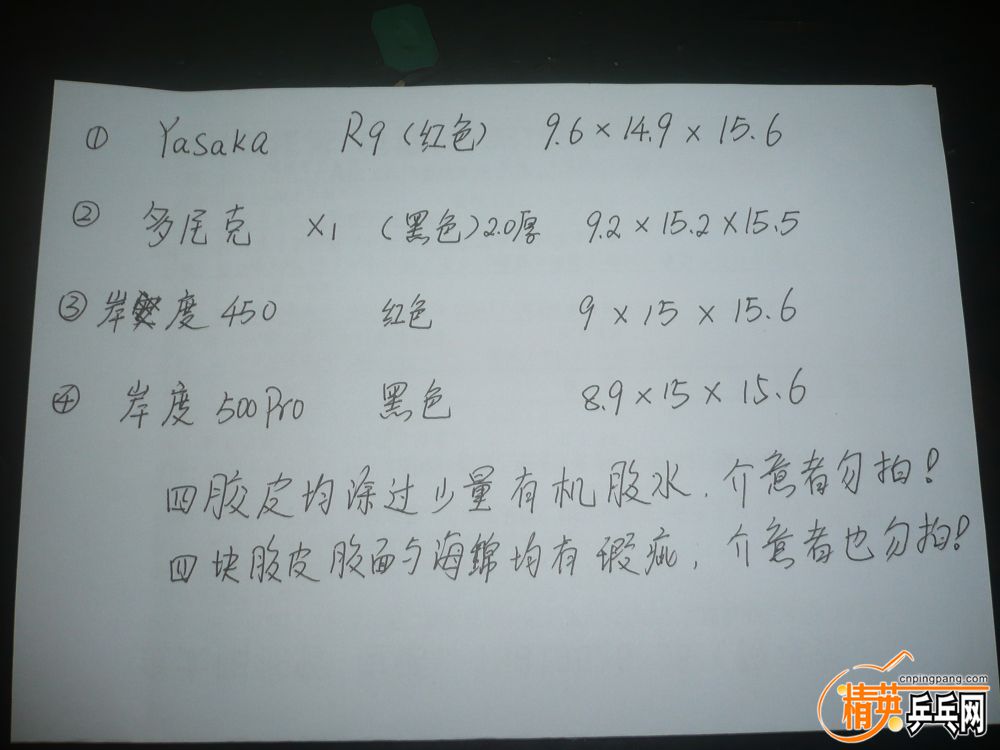 ① Yasaka R9 (红色) 9.6×14.9×15.6
② 多尼克 X1 (黑色) 2.0厚 9.2×15.2×15.5
③ 岸度 450 红色 9×15×15.6
④ 岸度 500Pro 黑色 8.9×15×15.6
四胶皮均涂过少量有机胶水,介意者勿拍!
四块胶皮胶面与海绵均有瑕疵,介意者也勿拍!
cnpingpang.com
精英乒乓网